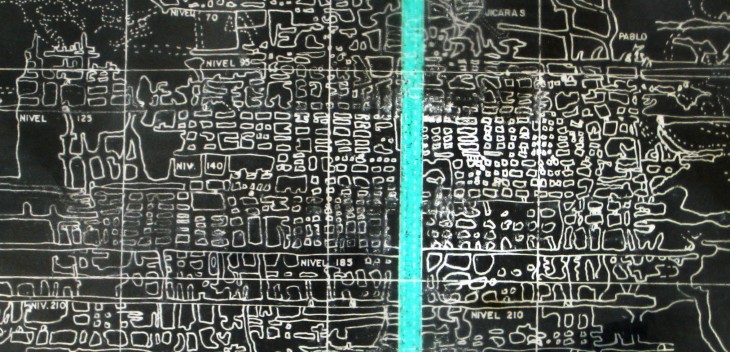 NIVEL 70
JICARAS
PABLO
NIVEL 95
NIVEL 125
NIV. 140
NIVEL 185
NIV. 210
NIVEL 210